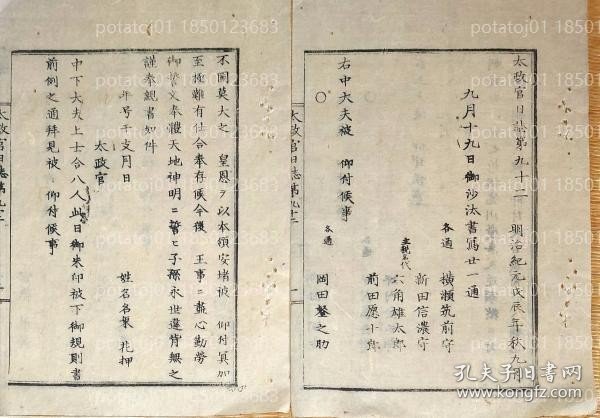 太政官日誌第九十二 明治紀元戊辰年秋九月
九月十九日御沙汰書寫廿一通
各通 横瀬筑前守
新田信濃守
主税名代
六角雄太郎
前田愿十郎
右中大夫被 仰付候事
○ 各通 岡田鍫之助
太政官日誌第九十二 一
不圖莫大之 皇恩ヲ以本領安堵被 仰付冥加
至極難有仕合奉存候今後 王事ニ盡心勤勞
御誓文奉體天地神明ニ誓ヒ子孫永世違背無之
謹奉親書如件
年号干支月日 姓名名乗 花押
太政官
中下大夫上士合八人此日御朱印被下御規則書
前例之通拜見被 仰付候事
potatoj01 1850123683
potatoj01 1850123683
potatoj01 1850123683
potatoj01 1850123683
孔夫子旧书网
kongfz.com